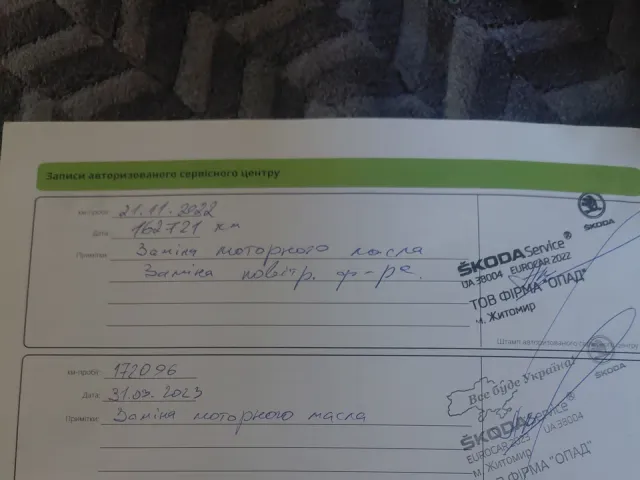 Записи авторизованого сервісного центру
км-пробіг 21.11.2022
Дата 162721 км
Примітки Заміна моторного масла
Заміна повітр. ф-ра.
ŠKODA
ŠKODA Service®
UA 38004 EUROCAR 2022
ТОВ ФІРМА "ОПАД"
м. Житомир
Штамп авторизованого сервісного центру
км-пробіг 172096
Дата 31.03.2023
Примітки Заміна моторного масла
ŠKODA
Все буде Україна!
ŠKODA Service®
EUROCAR 2023 UA 38004
м. Житомир
ТОВ ФІРМА "ОПАД"